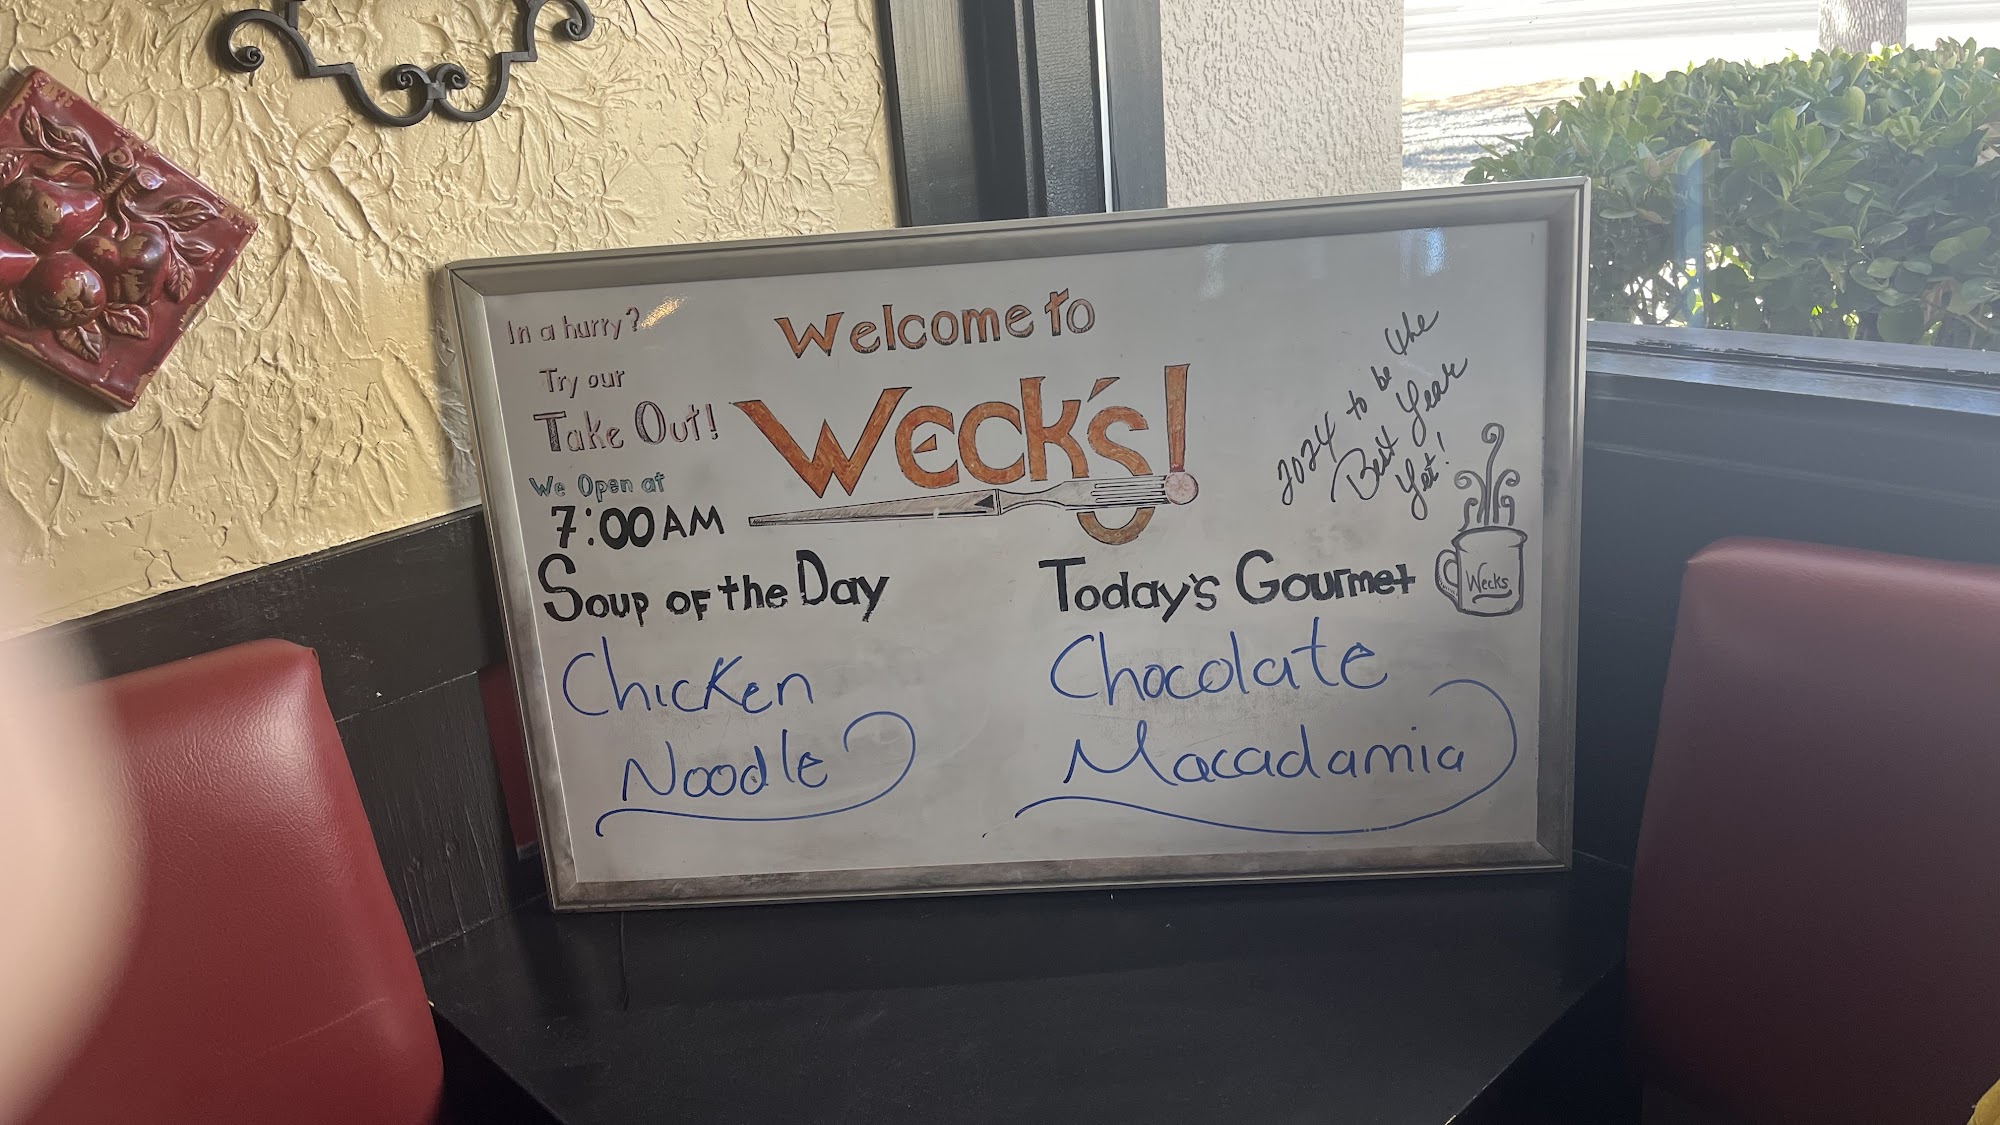 In a hurry?
Try our
Take Out!
We Open at
7:00 AM
Welcome to
Weck's!
2024 to be the
Best Year
Yet!
Wecks
Soup of the Day
Chicken
Noodle
Today's Gourmet
Chocolate
Macadamia